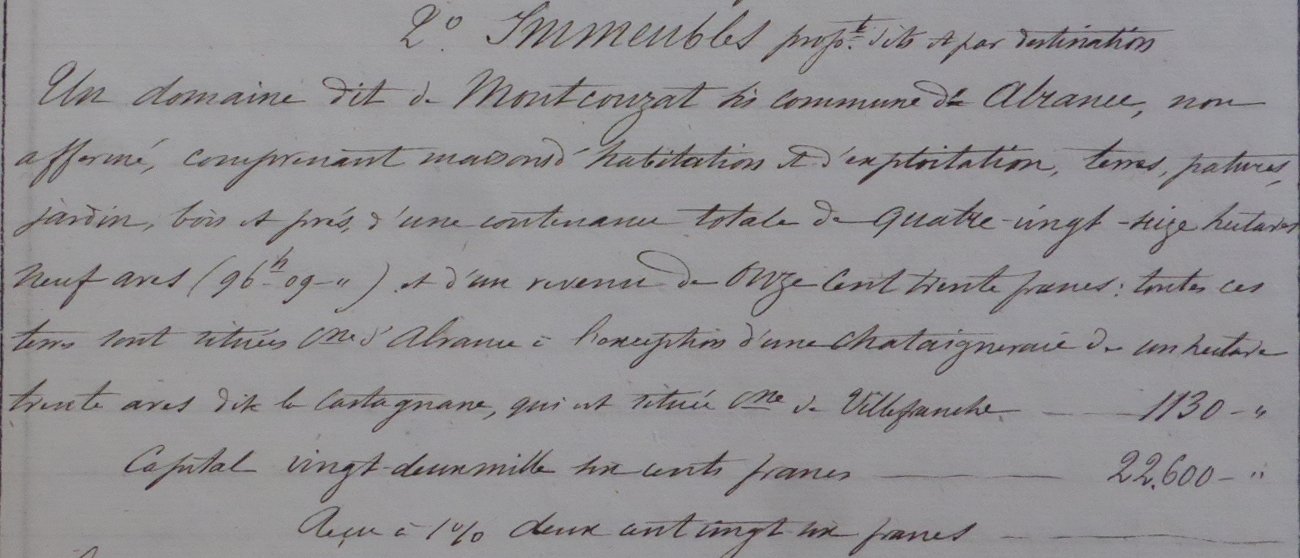 2º. Immeubles propt dits et par destination
Un domaine dit de Montcouzat sis commune d'Alrance, non
affermé, comprenant maisons d'habitation et d'exploitation, terres, patures,
jardin, bois et prés, d'une contenance totale de quatre-vingt-seize hectares
neuf ares (96h 09 - ") et d'un revenu de Onze cent trente francs : toutes ces
terres sont situées Cne d'Alrance à l'exception d'une chataigneraie de un hectare
trente ares dite la Castagnane, qui est située Cne de Villefranche — 1130 - "
Capital vingt-deux mille six cents francs — 22.600 - "
Reçu à 1 % deux cent vingt-six francs —